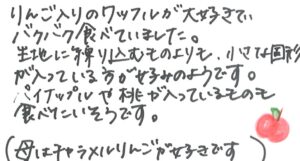 りんご入りのワッフルが大好きでい
バクバク食べていました。
生地に練り込むものよりも、小さな固形
が入っている方が好みのようです。
パイナップルや桃が入っているものも
食べたいそうです。
(母はキャラメルりんごが好きです)